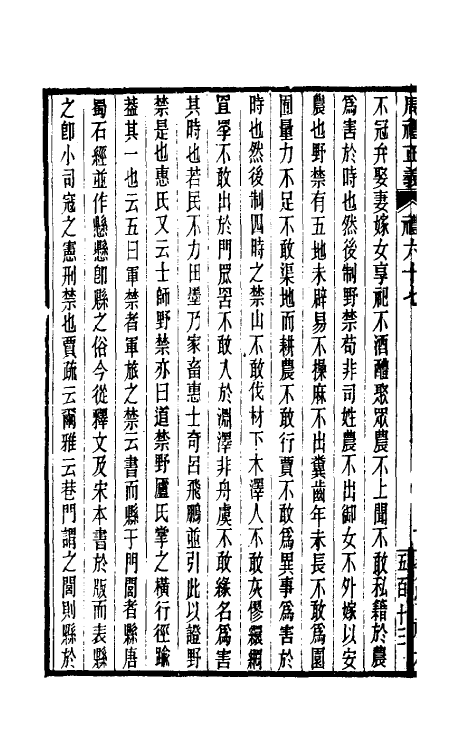 周禮正義 禮六十七
不冠弁娶妻嫁女享祀不酒醴聚眾農不上聞不敢私籍於農
爲害於時也然後制野禁苟非同姓農不出御女不外嫁以安
農也野禁有五地未辟易不操麻不出糞齒年未長不敢爲園
囿量力不足不敢渠地而耕農不敢行賈不敢爲異事爲害於
時也然後制四時之禁山不敢伐材下木澤人不敢灰僇繯網
罝罦不敢出於門罛罟不敢入於淵澤非舟虞不敢緣名爲害
其時也若民不力田墨乃家畜惠士奇呂飛鵬並引此以證野
禁是也惠氏又云士師野禁亦曰道禁野廬氏掌之橫行徑踰
葢其一也云五曰軍禁者軍旅之禁云書而縣于門閭者縣唐
蜀石經並作懸懸卽縣之俗今從釋文及宋本書於版而表縣
之卽小司寇之憲刑禁也賈疏云爾雅云巷門謂之閎則縣於